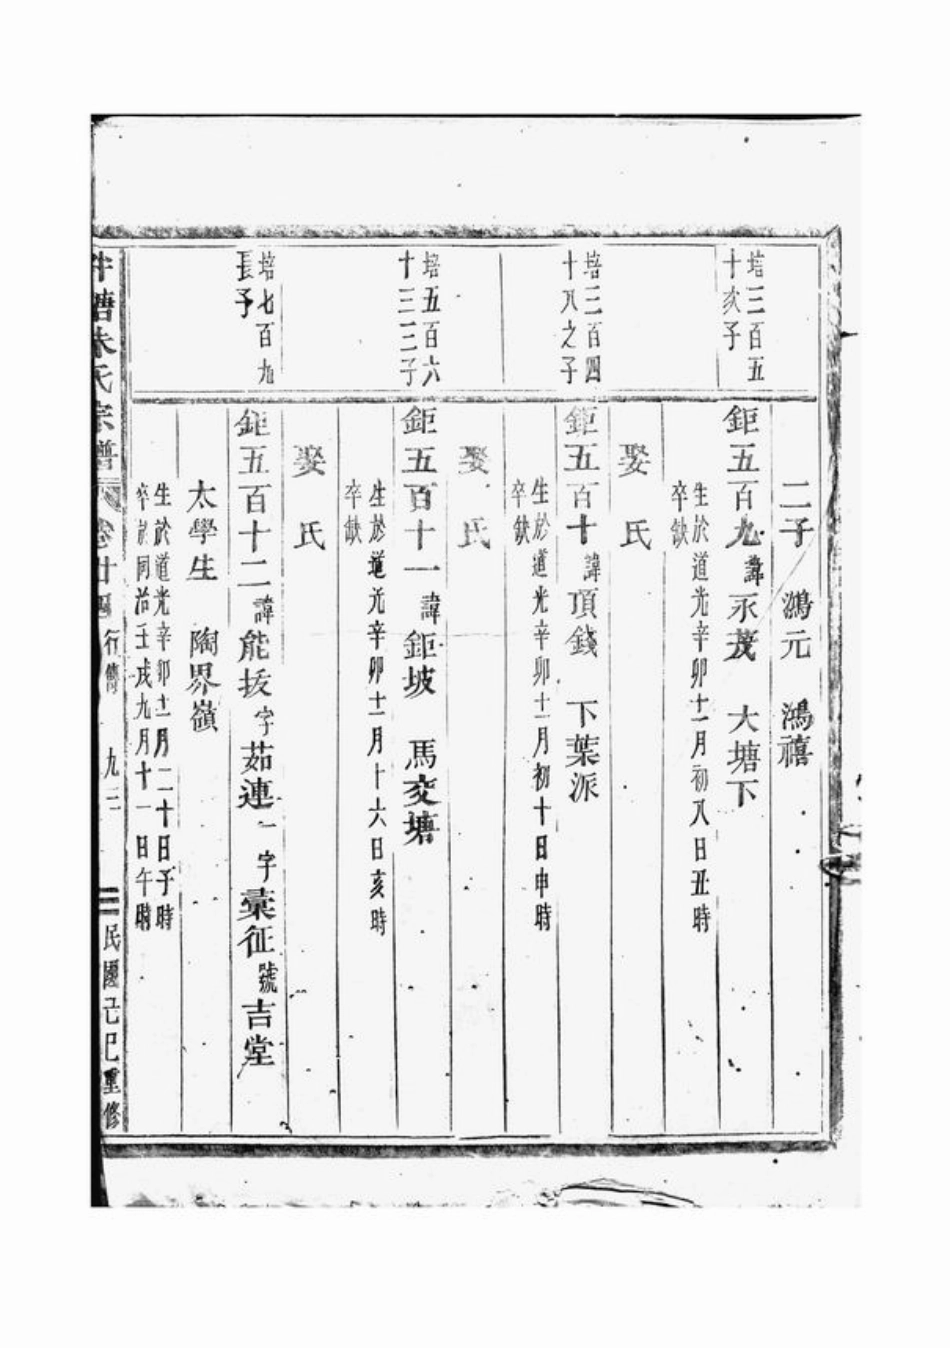 二子 鴻元 鴻禧
培三百五
十次子
鉅五百九諱永茂 大塘下
生於道光辛卯十一月初八日丑時
卒缺
娶 氏
培三百四
十八之子
鉅五百十諱頂錢 下葉派
生於道光辛卯十一月初十日申時
卒缺
娶 氏
培五百六
十三三子
鉅五百十一諱鉅坡 馬交塘
生於道光辛卯十一月十六日亥時
卒缺
娶 氏
培七百九
長子
鉅五百十二諱能拔字茹連一字彙征號吉堂
太學生 陶界嶺
生於道光辛卯十一月二十日子時
卒於同治壬戌九月十一日午時
塘朱氏宗譜 卷廿四 行傳 九三 民國己巳重修